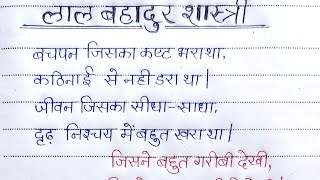 लाल बहादुर शास्त्री
बचपन जिसका कष्ट भरा था,
कठिनाई से नही डरा था।
जीवन जिसका सीधा-साधा,
दृढ़ निश्चय में बहुत खरा था।
जिसने बहुत गरीबी देखी,